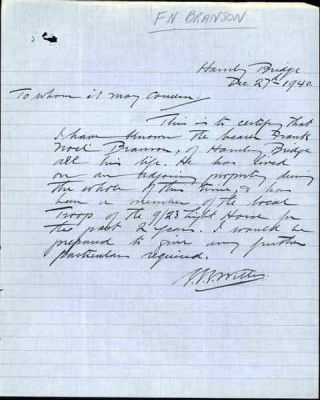 F N. BRANSON
Hamley Bridge
Dec 27th 1940.
To whom it may concern,
This is to certify that
I have known the bearer Frank
Noel Branson, of Hamley Bridge
all his life. He has lived
on an adjoining property during
the whole of this time, & has
been a member of the local
Troop of the 9/23 Light Horse for
the past 2 years. I would be
prepared to give any further
particulars required.